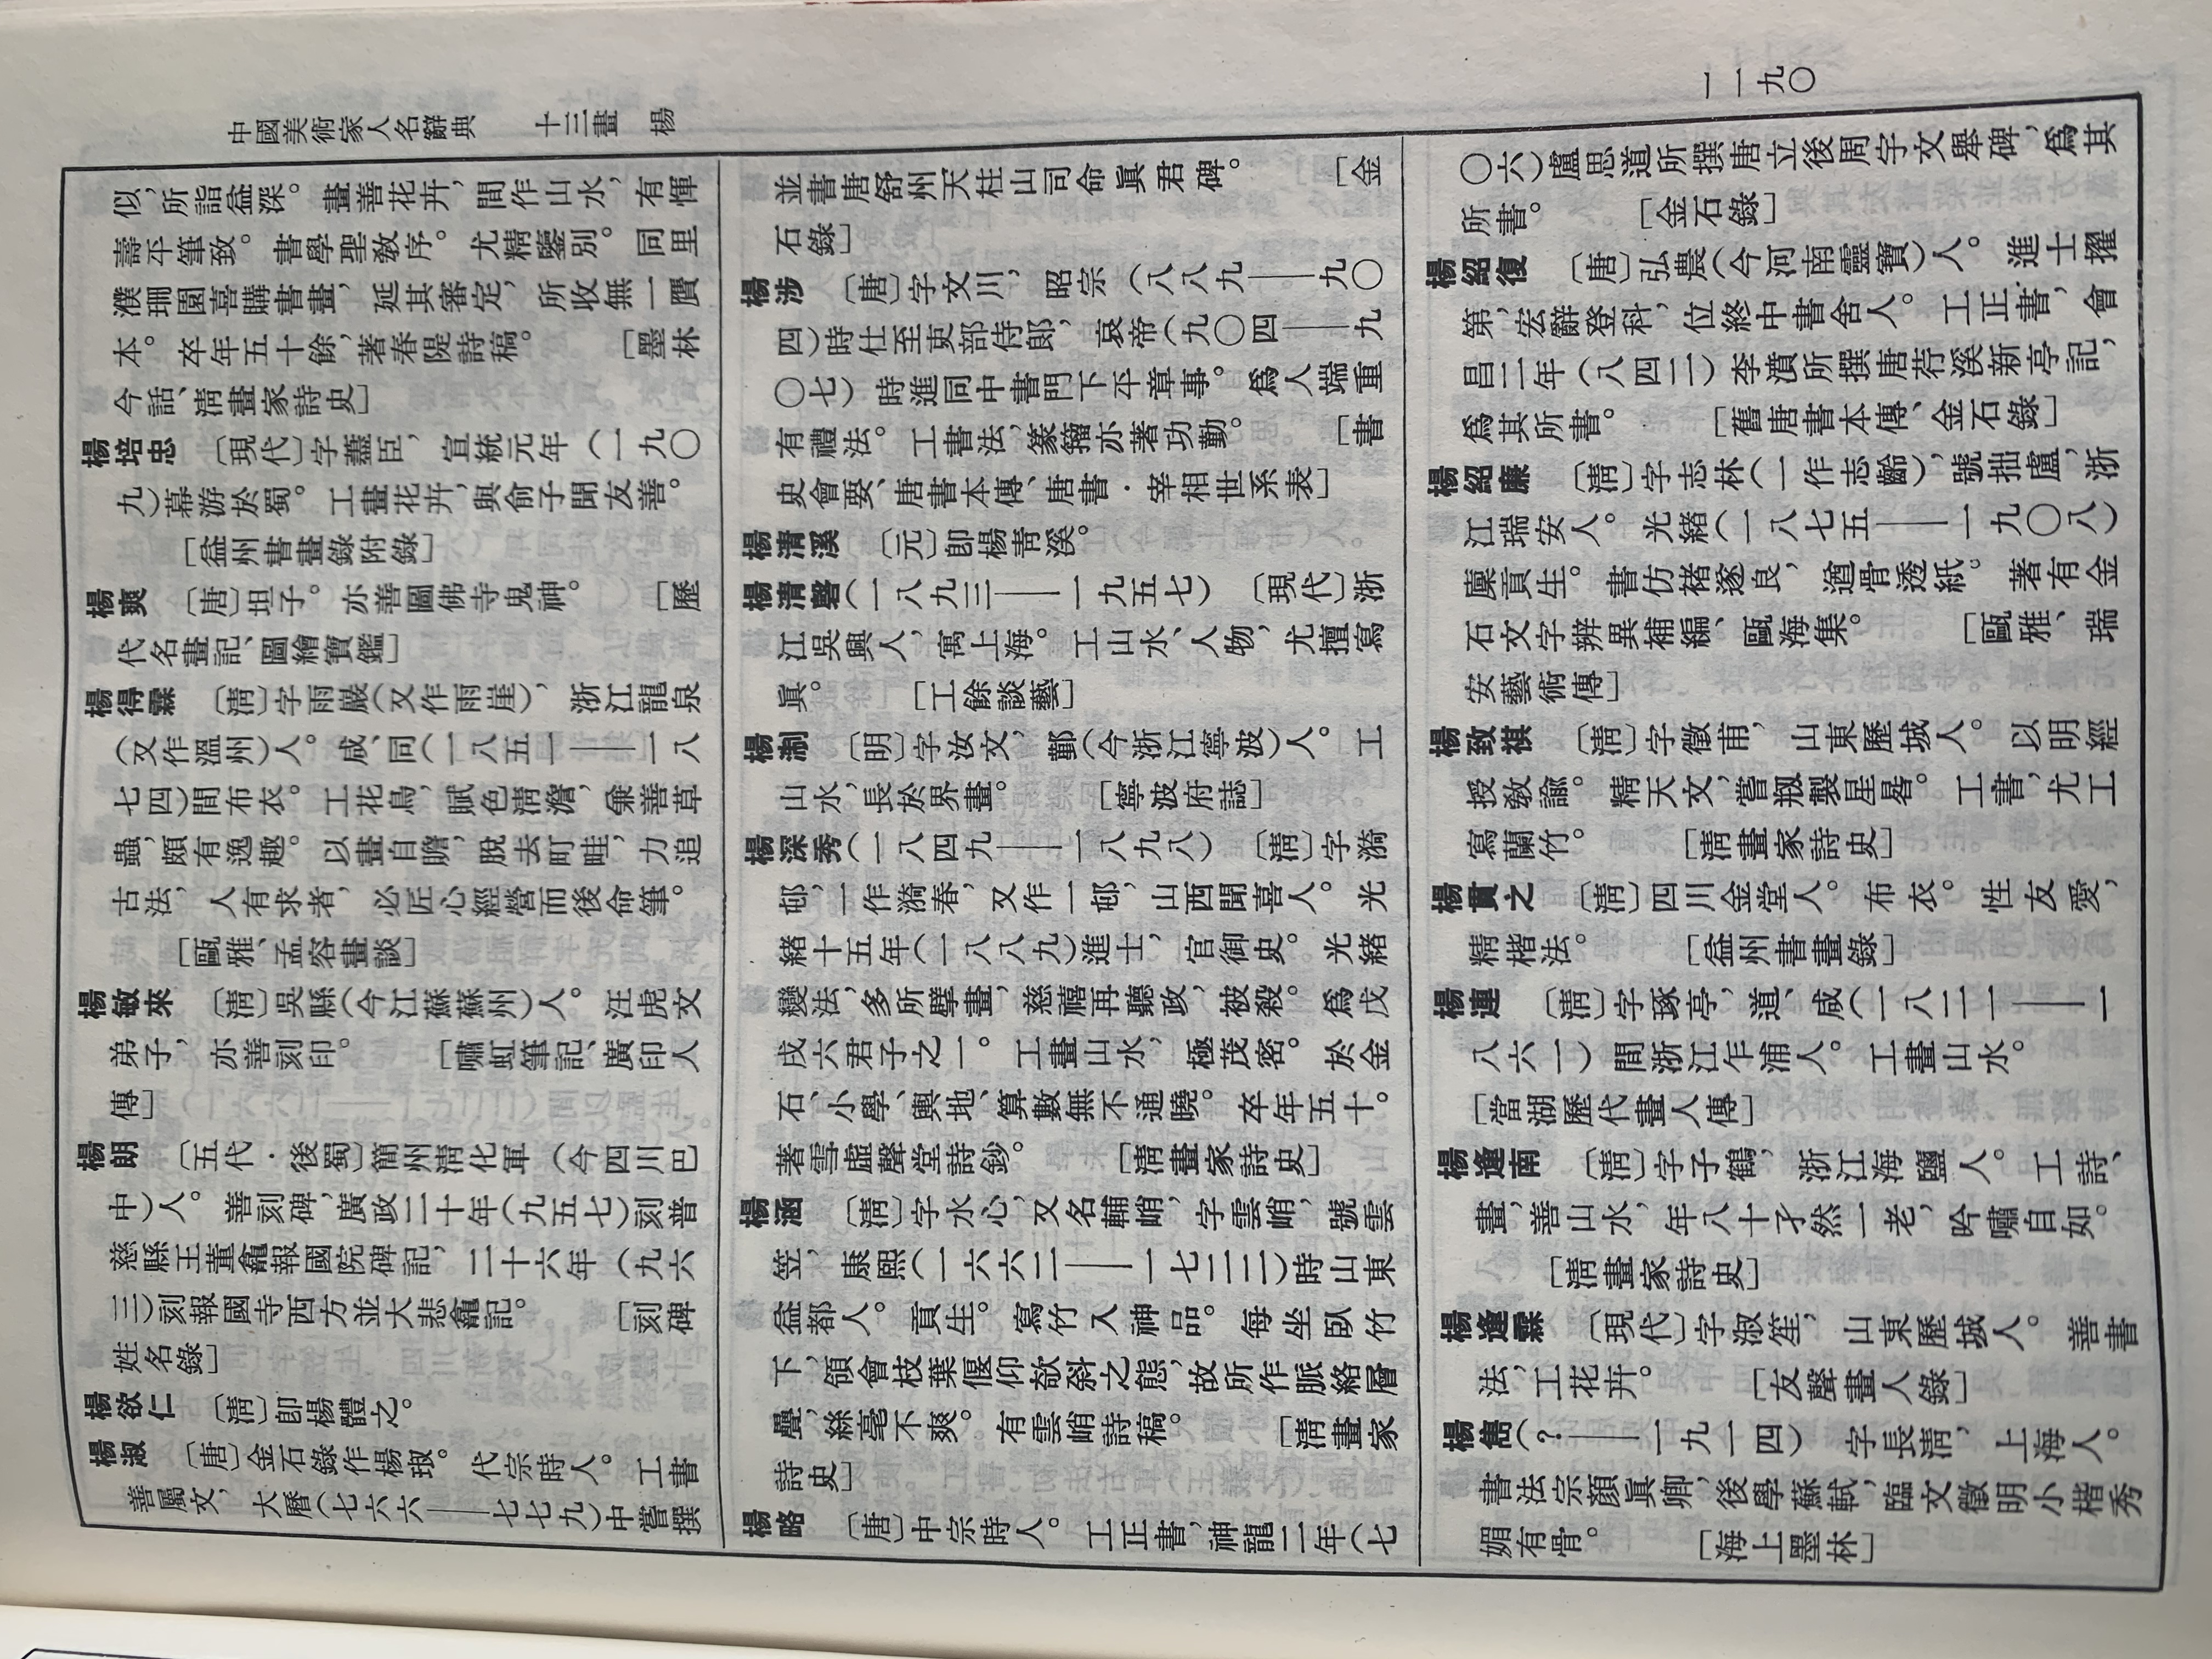 中國美術家人名辭典　十三畫　楊
一一九〇
似，所詣益深。畫善花卉，間作山水，有惲
壽平筆致。書學聖教序。尤精鑒別。同里
濮珊園喜購書畫，延其審定，所收無一贋
本。卒年五十餘，著春隄詩稿。　〔墨林
今話、清畫家詩史〕
楊培忠　〔現代〕字藎臣，宣統元年（一九〇
九）幕游於蜀。工畫花卉，與俞子聞友善。
〔益州書畫錄附錄〕
楊爽　〔唐〕坦子。亦善圖佛寺鬼神。　〔歷
代名畫記、圖繪寶鑑〕
楊得霖　〔清〕字雨巖（又作雨崖），浙江龍泉
（又作溫州）人。咸、同（一八五一——一八
七四）間布衣。工花鳥，賦色清澹，兼善草
蟲，頗有逸趣。以畫自贍，脫去町畦，力追
古法，人有求者，必匠心經營而後命筆。
〔甌雅、孟容畫談〕
楊敏來　〔清〕吳縣（今江蘇蘇州）人。汪虎文
弟子，亦善刻印。　〔嘯虹筆記、廣印人
傳〕
楊朗　〔五代·後蜀〕簡州清化軍（今四川巴
中）人。善刻碑，廣政二十年（九五七）刻普
慈縣王董龕報國院碑記，二十六年（九六
三）刻報國寺西方並大悲龕記。　〔刻碑
姓名錄〕
楊欲仁　〔清〕即楊體之。
楊淑　〔唐〕金石錄作楊琡。代宗時人。工書
善屬文，大曆（七六六——七七九）中嘗撰
並書唐舒州天柱山司命眞君碑。　〔金
石錄〕
楊涉　〔唐〕字文川，昭宗（八八九——九〇
四）時仕至吏部侍郎，哀帝（九〇四——九
〇七）時進同中書門下平章事。爲人端重
有禮法。工書法，篆籀亦著功勤。　〔書
史會要、唐書本傳、唐書·宰相世系表〕
楊清溪　〔元〕即楊青溪。
楊清磬（一八九三——一九五七）　〔現代〕浙
江吳興人，寓上海。工山水、人物，尤擅寫
眞。　〔工餘談藝〕
楊淛　〔明〕字汝文，鄞（今浙江寧波）人。工
山水，長於界畫。　〔寧波府誌〕
楊深秀（一八四九——一八九八）　〔清〕字漪
邨，一作漪春，又作一邨，山西聞喜人。光
緒十五年（一八八九）進士，官御史。光緒
變法，多所擘畫，慈禧再聽政，被殺。爲戊
戌六君子之一。工畫山水，極茂密。於金
石、小學、輿地、算數無不通曉。卒年五十。
著雪虛聲堂詩鈔。　〔清畫家詩史〕
楊涵　〔清〕字水心，又名輔峭，字雲峭，號雲
笠，康熙（一六六二——一七二二）時山東
益都人。貢生。寫竹入神品。每坐臥竹
下，領會枝葉偃仰欹斜之態，故所作脈絡層
疊，絲毫不爽。有雲峭詩稿。　〔清畫家
詩史〕
楊略　〔唐〕中宗時人。工正書，神龍二年（七
〇六）盧思道所撰唐立後周宇文舉碑，爲其
所書。　〔金石錄〕
楊紹復　〔唐〕弘農（今河南靈寶）人。進士擢
第，宏辭登科，位終中書舍人。工正書，會
昌二年（八四二）李濆所撰唐苻溪新亭記，
爲其所書。　〔舊唐書本傳、金石錄〕
楊紹廉　〔清〕字志林（一作志齡），號拙廬，浙
江瑞安人。光緒（一八七五——一九〇八）
廩貢生。書仿褚遂良，遒骨透紙。著有金
石文字辨異補編、甌海集。　〔甌雅、瑞
安藝術傳〕
楊致祺　〔清〕字徵甫，山東歷城人。以明經
授教諭。精天文，嘗剏製星晷。工書，尤工
寫蘭竹。　〔清畫家詩史〕
楊貫之　〔清〕四川金堂人。布衣。性友愛，
精楷法。　〔益州書畫錄〕
楊連　〔清〕字琢亭，道、咸（一八二一——一
八六一）間浙江乍浦人。工畫山水。
〔當湖歷代畫人傳〕
楊逢南　〔清〕字子鶴，浙江海鹽人。工詩、
畫，善山水，年八十孑然一老，吟嘯自如。
〔清畫家詩史〕
楊逢霖　〔現代〕字淑笙，山東歷城人。善書
法，工花卉。　〔友聲畫人錄〕
楊雋（？——一九一四）　字長清，上海人。
書法宗顏眞卿，後學蘇軾，臨文徵明小楷秀
媚有骨。　〔海上墨林〕